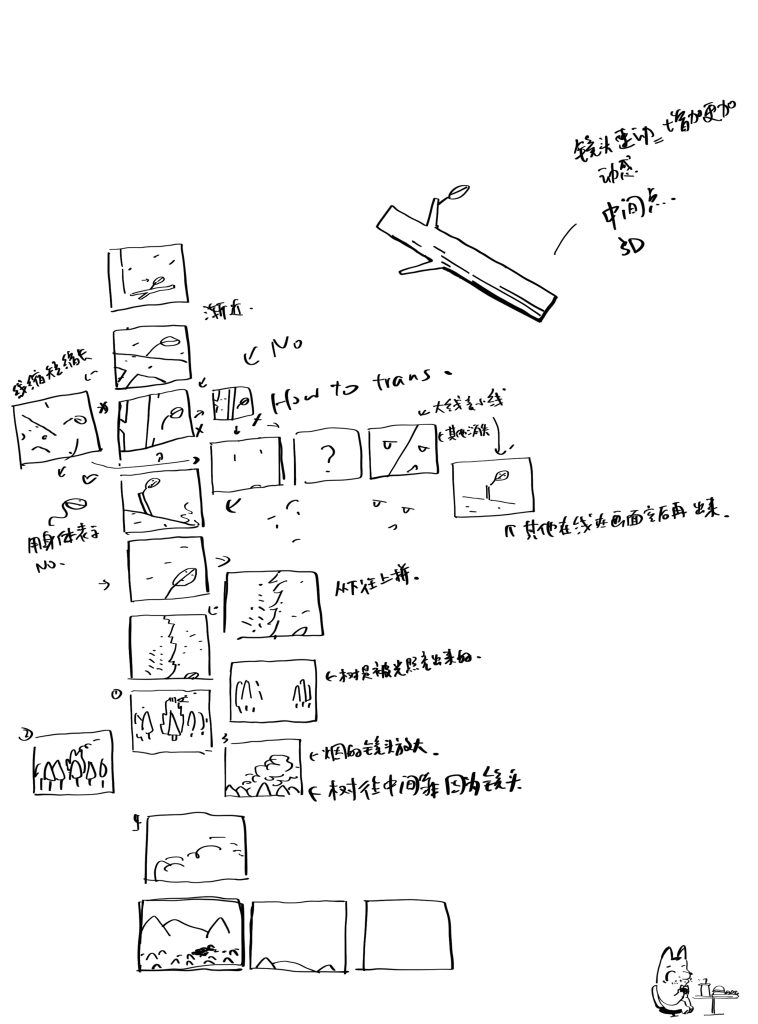 镜头运动=增加更加
动感.
中间点...
3D
渐近.
线缩短缩长
No
How to trans.
大线变小线
其他消失
?
用身体表示
No.
其他在线在画面空后再出来.
从下往上掰.
树是被光照亮出来的.
①
②
3
烟的镜头放大.
树往中间靠因为镜头
4